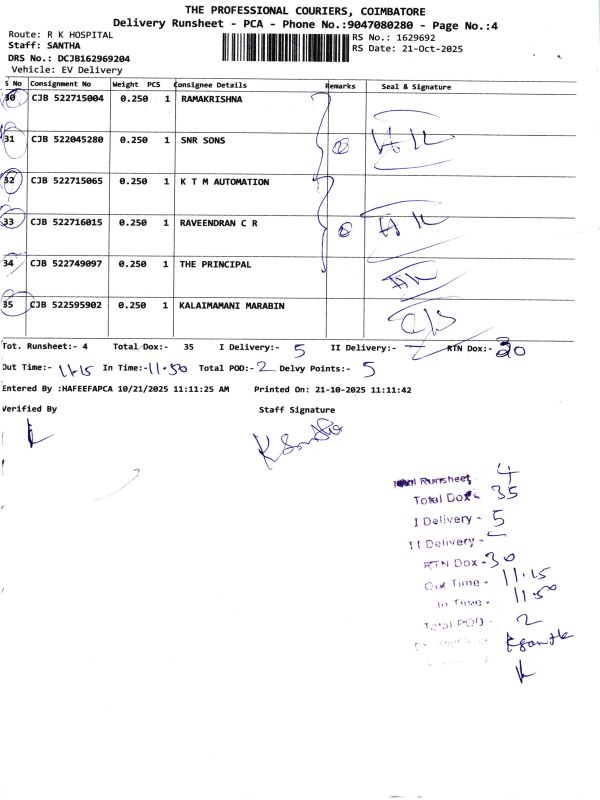 THE PROFESSIONAL COURIERS, COIMBATORE
Delivery Runsheet - PCA - Phone No.:9047080280 - Page No.:4
Route: R K HOSPITAL
RS No.: 1629692
Staff: SANTHA
RS Date: 21-Oct-2025
DRS No.: DCJB162969204
Vehicle: EV Delivery
S No Consignment No Weight PCS Consignee Details Remarks Seal & Signature
30 CJB 522715004 0.250 1 RAMAKRISHNA
31 CJB 522045280 0.250 1 SNR SONS
32 CJB 522715065 0.250 1 K T M AUTOMATION
33 CJB 522716015 0.250 1 RAVEENDRAN C R
34 CJB 522749097 0.250 1 THE PRINCIPAL
35 CJB 522595902 0.250 1 KALAIMAMANI MARABIN
Tot. Runsheet:- 4 Total Dox:- 35 I Delivery:- 5 II Delivery:- — RTN Dox:- 30
Out Time:- 11.15 In Time:- 11.50 Total POD:- 2 Delvy Points:- 5
Entered By :HAFEEFAPCA 10/21/2025 11:11:25 AM Printed On: 21-10-2025 11:11:42
Verified By Staff Signature
K Santha
Runsheet 4
Total Dox - 35
I Delivery - 5
II Delivery - –
RTN Dox - 30
Out Time - 11.15
In Time - 11.50
Total POD - 2
K Santha